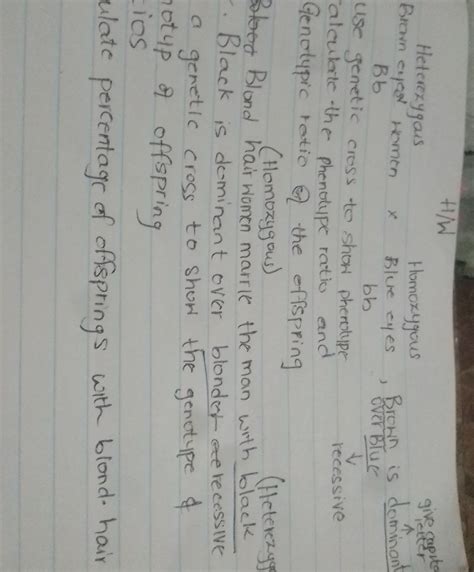 H/W
Heterozygous Homozygous give capital letter
Brown eyed Women x Blue eyes , Brown is dominant
Bb bb over Blue
use genetic cross to show phenotype recessive
alculate the phenotype ratio and
Genotypic ratio of the offspring
(Homozygous) (Heterozyg
Blond hair Women marrie the man with black
. Black is dominant over blonde recessive
a genetic cross to show the genotype &
notyp of offspring
ios
ulate percentage of offsprings with blond hair